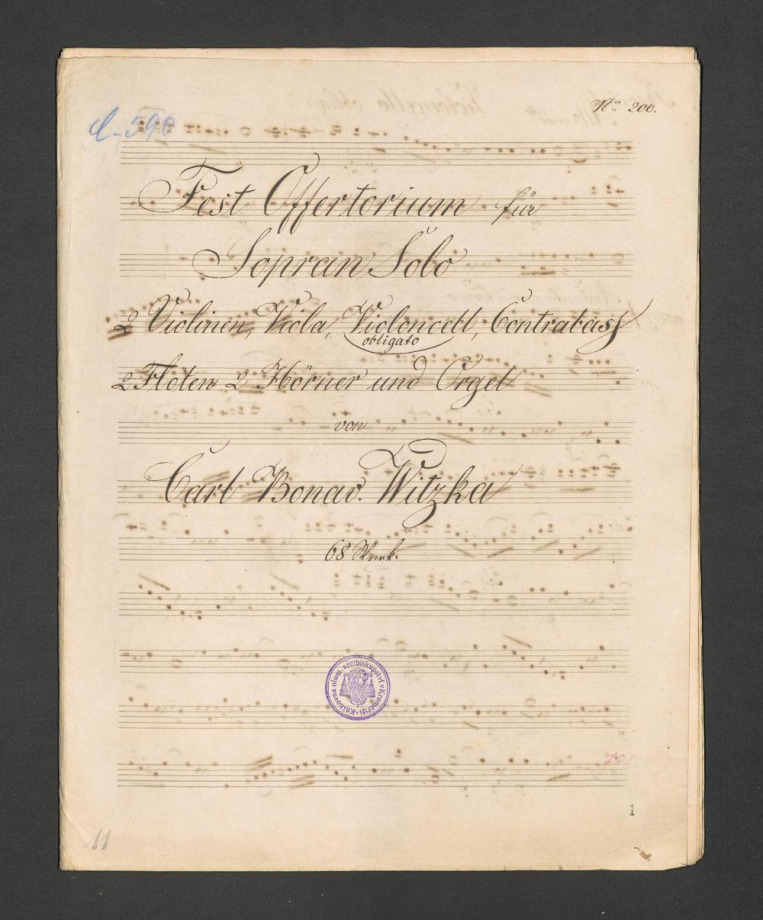 C-590
No 200.
Fest Offertorium für
Sopran Solo
2 Violinen, Viola, Violoncell, Contrabass
obligato
2 Flöten 2 Hörner und Orgel
von
Carl Bonav. Witzka
68 Werk.
Knihovna olom. arcibiskupství v Kroměříži
1
11